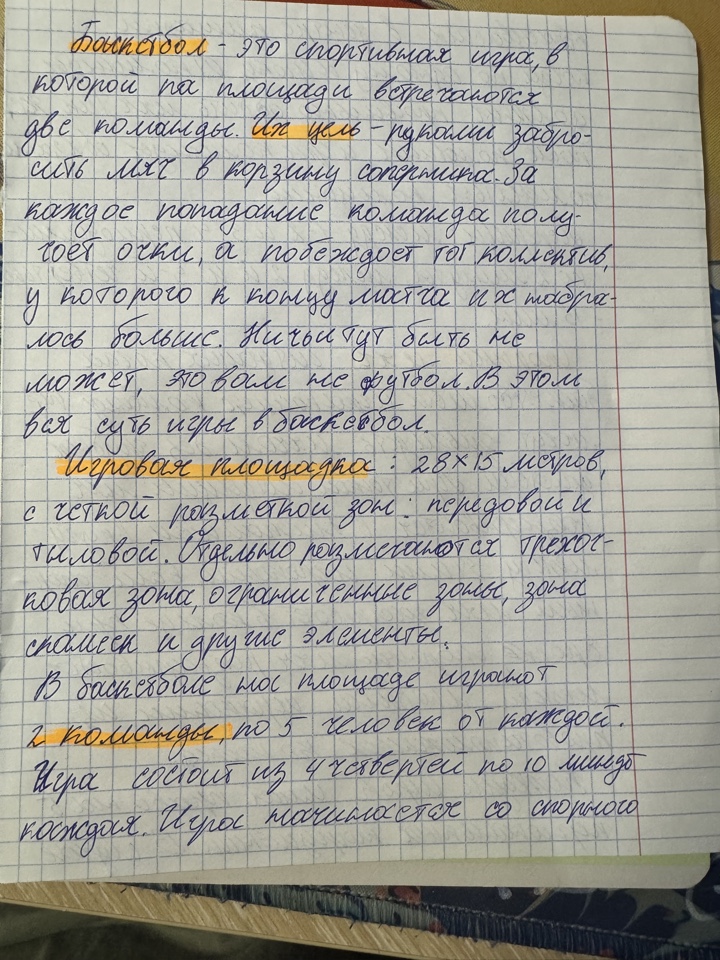 Баскетбол - это спортивная игра, в
которой на площади встречаются
две команды. Их цель - руками забро-
сить мяч в корзину соперника. За
каждое попадание команда полу-
чает очки, а побеждает тот коллектив,
у которого к концу матча их набра-
лось больше. Ничьи тут быть не
может, это вам не футбол. В этом
вся суть игры в баскетбол.
Игровая площадка: 28×15 метров,
с четкой разметкой зон: передовой и
тыловой. Отдельно размечаются трехоч-
ковая зона, ограниченные зоны, зона
скамеек и другие элементы.
В баскетболе на площаде играют
2 команды, по 5 человек от каждой.
Игра состоит из 4 четвертей по 10 минут
каждая. Игра начинается со спорного